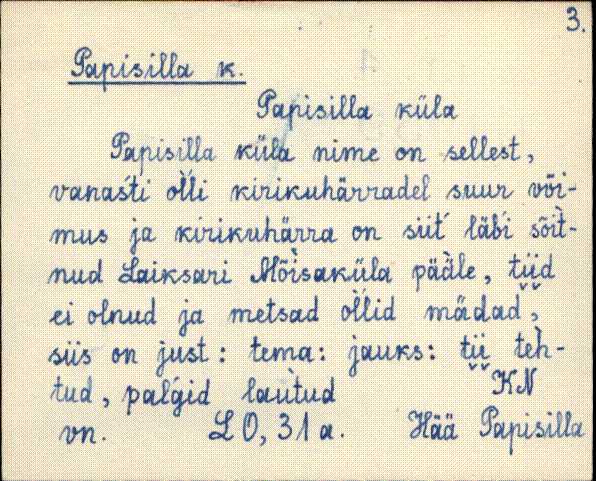 3.
Papisilla k.
Papisilla küla
Papisilla küla nime on sellest,
vanaśti ol̀li kirikuhärradel suur või-
mus ja kirikuhärra on siit́ läb́i sõit̀-
nud Laiksari Mõìsaküla pääle, tiid
ei olnud ja metsad ol̀lid mädad,
siis on just: tema: jauks: tii teh̀-
tud, palǵid laùtud KN
vn. L O, 31 a. Hää Papisilla